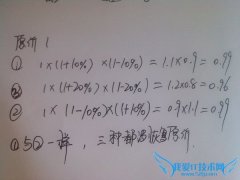 原价 1
① 1×(1+10%)×(1-10%)=1.1×0.9=0.99
② 1×(1+20%)×(1-20%)=1.2×0.8=0.96
② 1×(1-10%)×(1+10%)=0.9×1.1=0.99
①与②一样, 三种都没恢复原价
我爱IT技术网